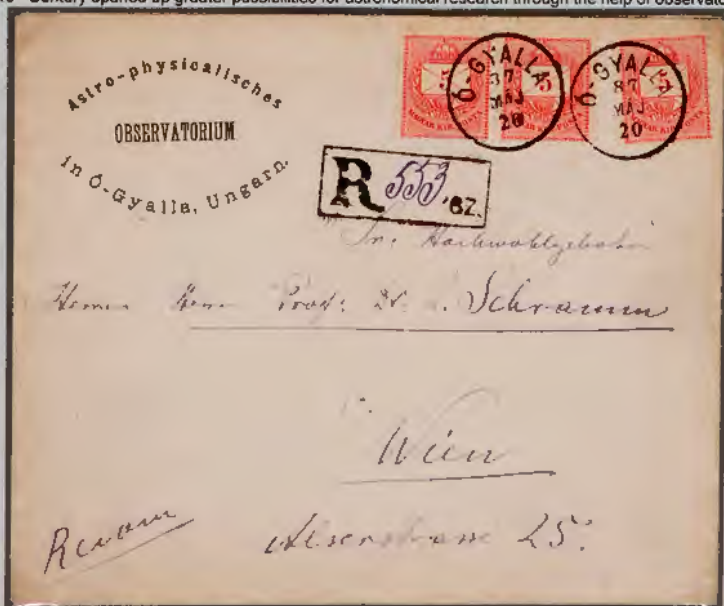 Century opened up greater possibilities for astronomical research through the help of observato
Astro-physicalisches
OBSERVATORIUM
in Ó-Gyalla, Ungarn.
5 5 5
MAGYAR KIR. POSTA
Ó-GYALLA
87
MÁJ
20
Ó-GYALLA
87
MÁJ
20
R 553 'SZ.
Sr. Hochwohlgeboren
Herrn Herrn Prof: Dr. Schramm
Wien
Recom
Alserstrasse 25.